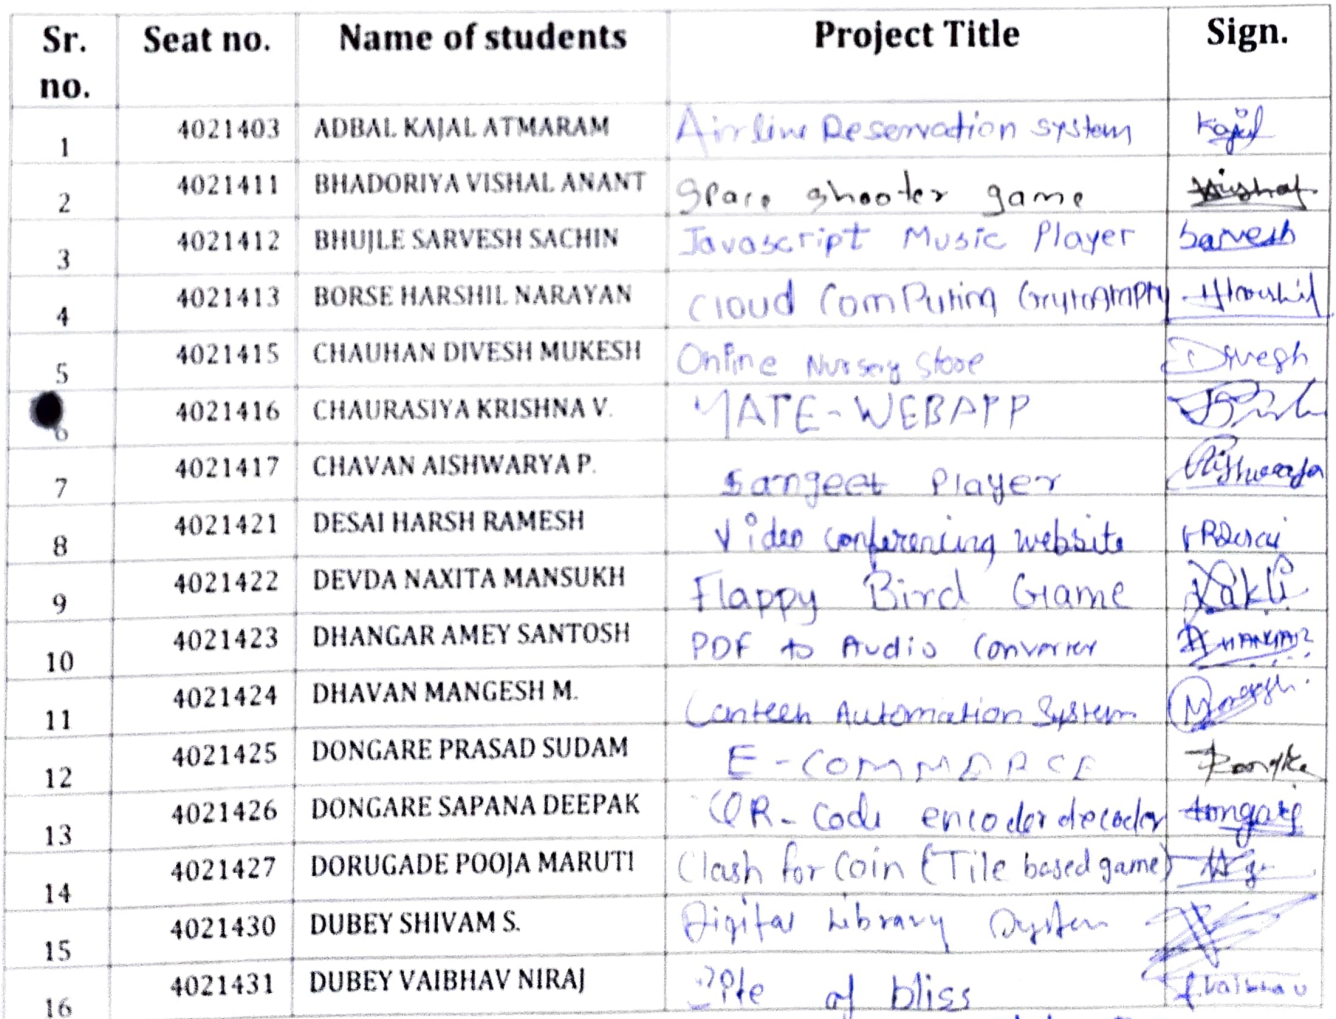 Sr. no. Seat no. Name of students Project Title Sign.
1 4021403 ADBAL KAJAL ATMARAM Airline Reservation system Kajal
2 4021411 BHADORIYA VISHAL ANANT Space shooter game Vishal
3 4021412 BHUJLE SARVESH SACHIN Javascript Music Player Sarvesh
4 4021413 BORSE HARSHIL NARAYAN Cloud Computing Harshil
5 4021415 CHAUHAN DIVESH MUKESH Online Nursery Store Divesh
6 4021416 CHAURASIYA KRISHNA V. MATE-WEBAPP
7 4021417 CHAVAN AISHWARYA P. Sangeet Player Aishwarya
8 4021421 DESAI HARSH RAMESH Video conferencing website HRDesai
9 4021422 DEVDA NAXITA MANSUKH Flappy Bird Game
10 4021423 DHANGAR AMEY SANTOSH PDF to Audio Converter
11 4021424 DHAVAN MANGESH M. Canteen Automation System Mangesh
12 4021425 DONGARE PRASAD SUDAM E-COMMERCE
13 4021426 DONGARE SAPANA DEEPAK QR-Code encoder decoder
14 4021427 DORUGADE POOJA MARUTI Clash for Coin (Tile based game)
15 4021430 DUBEY SHIVAM S. Digital Library System
16 4021431 DUBEY VAIBHAV NIRAJ Bite of bliss Vaibhav